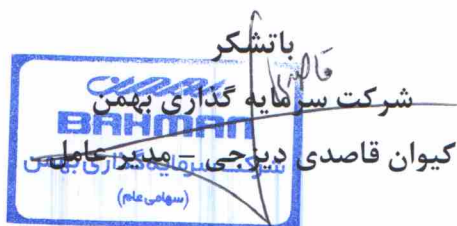 باتشکر
شرکت سرمایه گذاری بهمن
BAHMAN
کیوان قاصدی دیزجی – مدیر عامل
شرکت سرمایه گذاری بهمن
(سهامی عام)